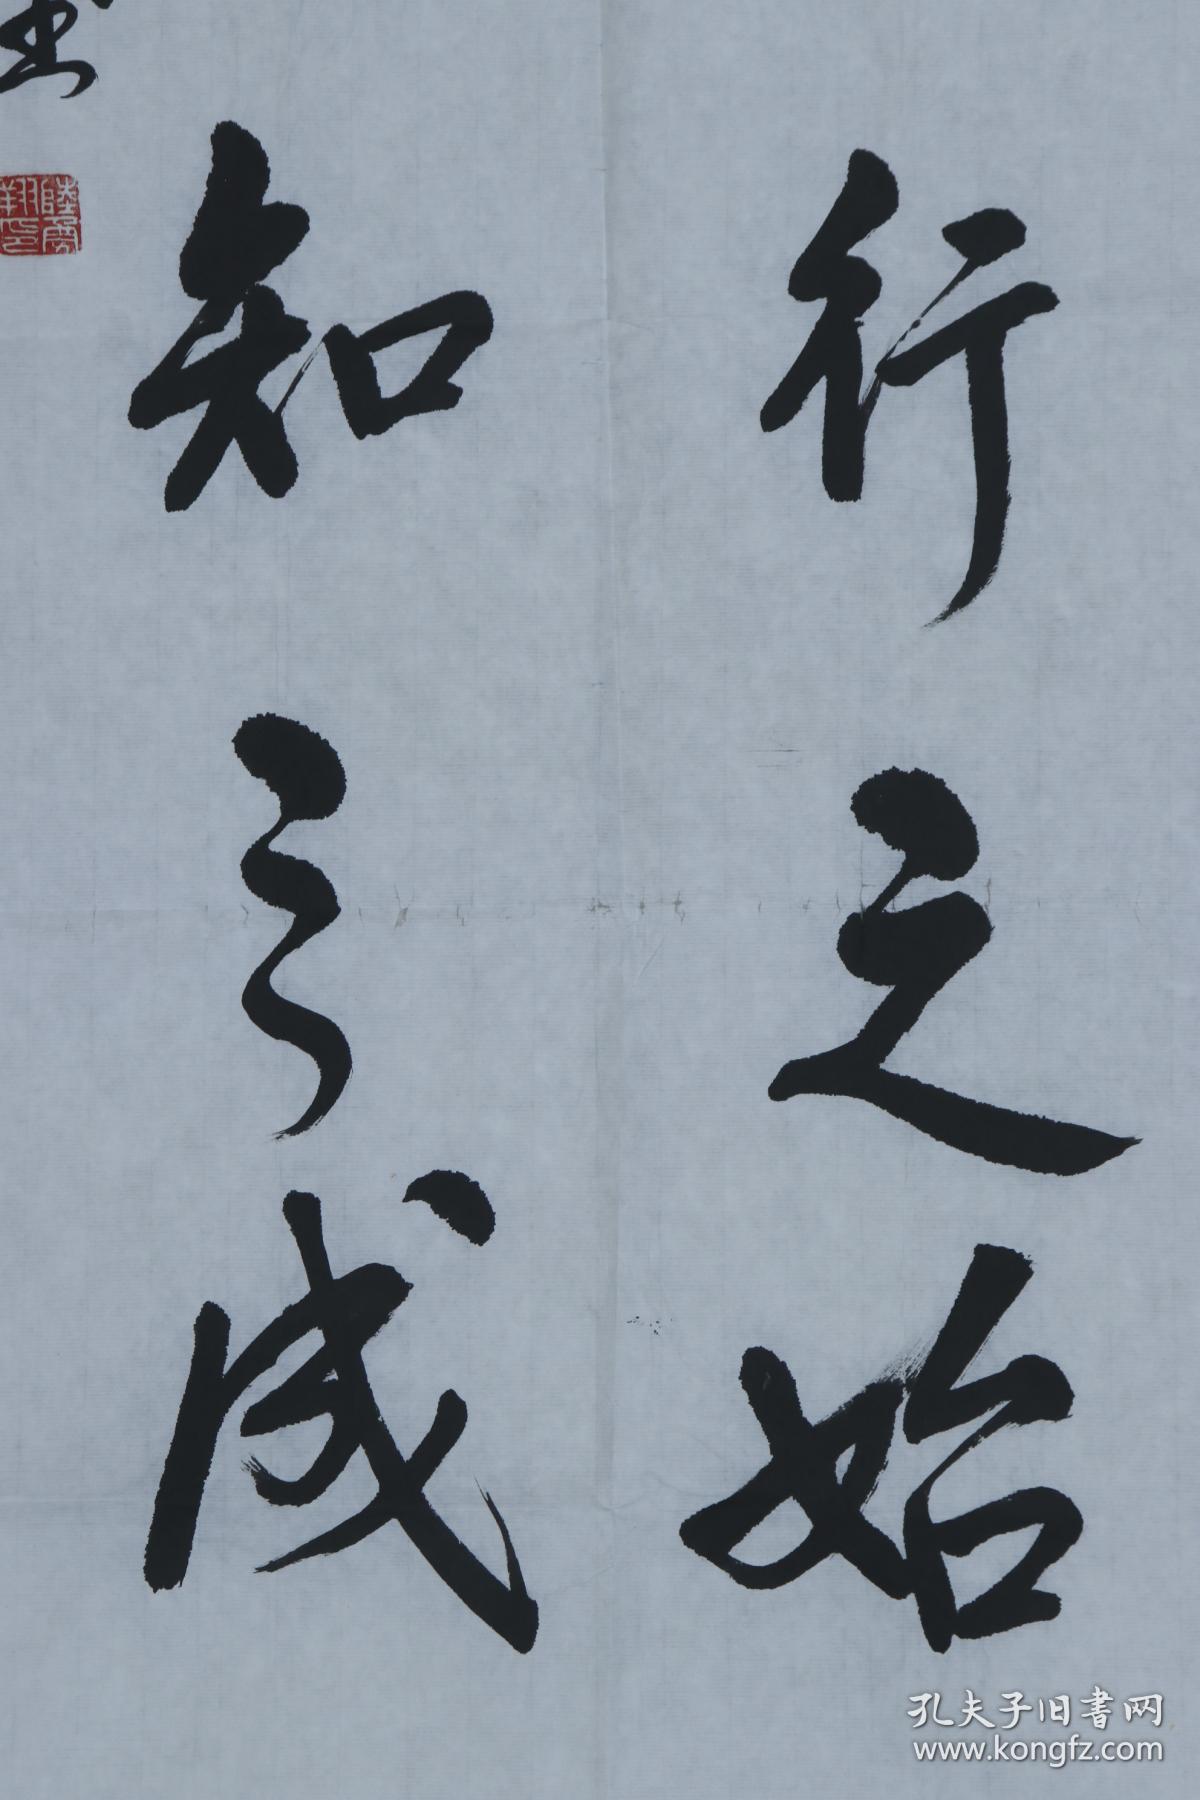 行之始
知之成
孔夫子旧书网
www.kongfz.com